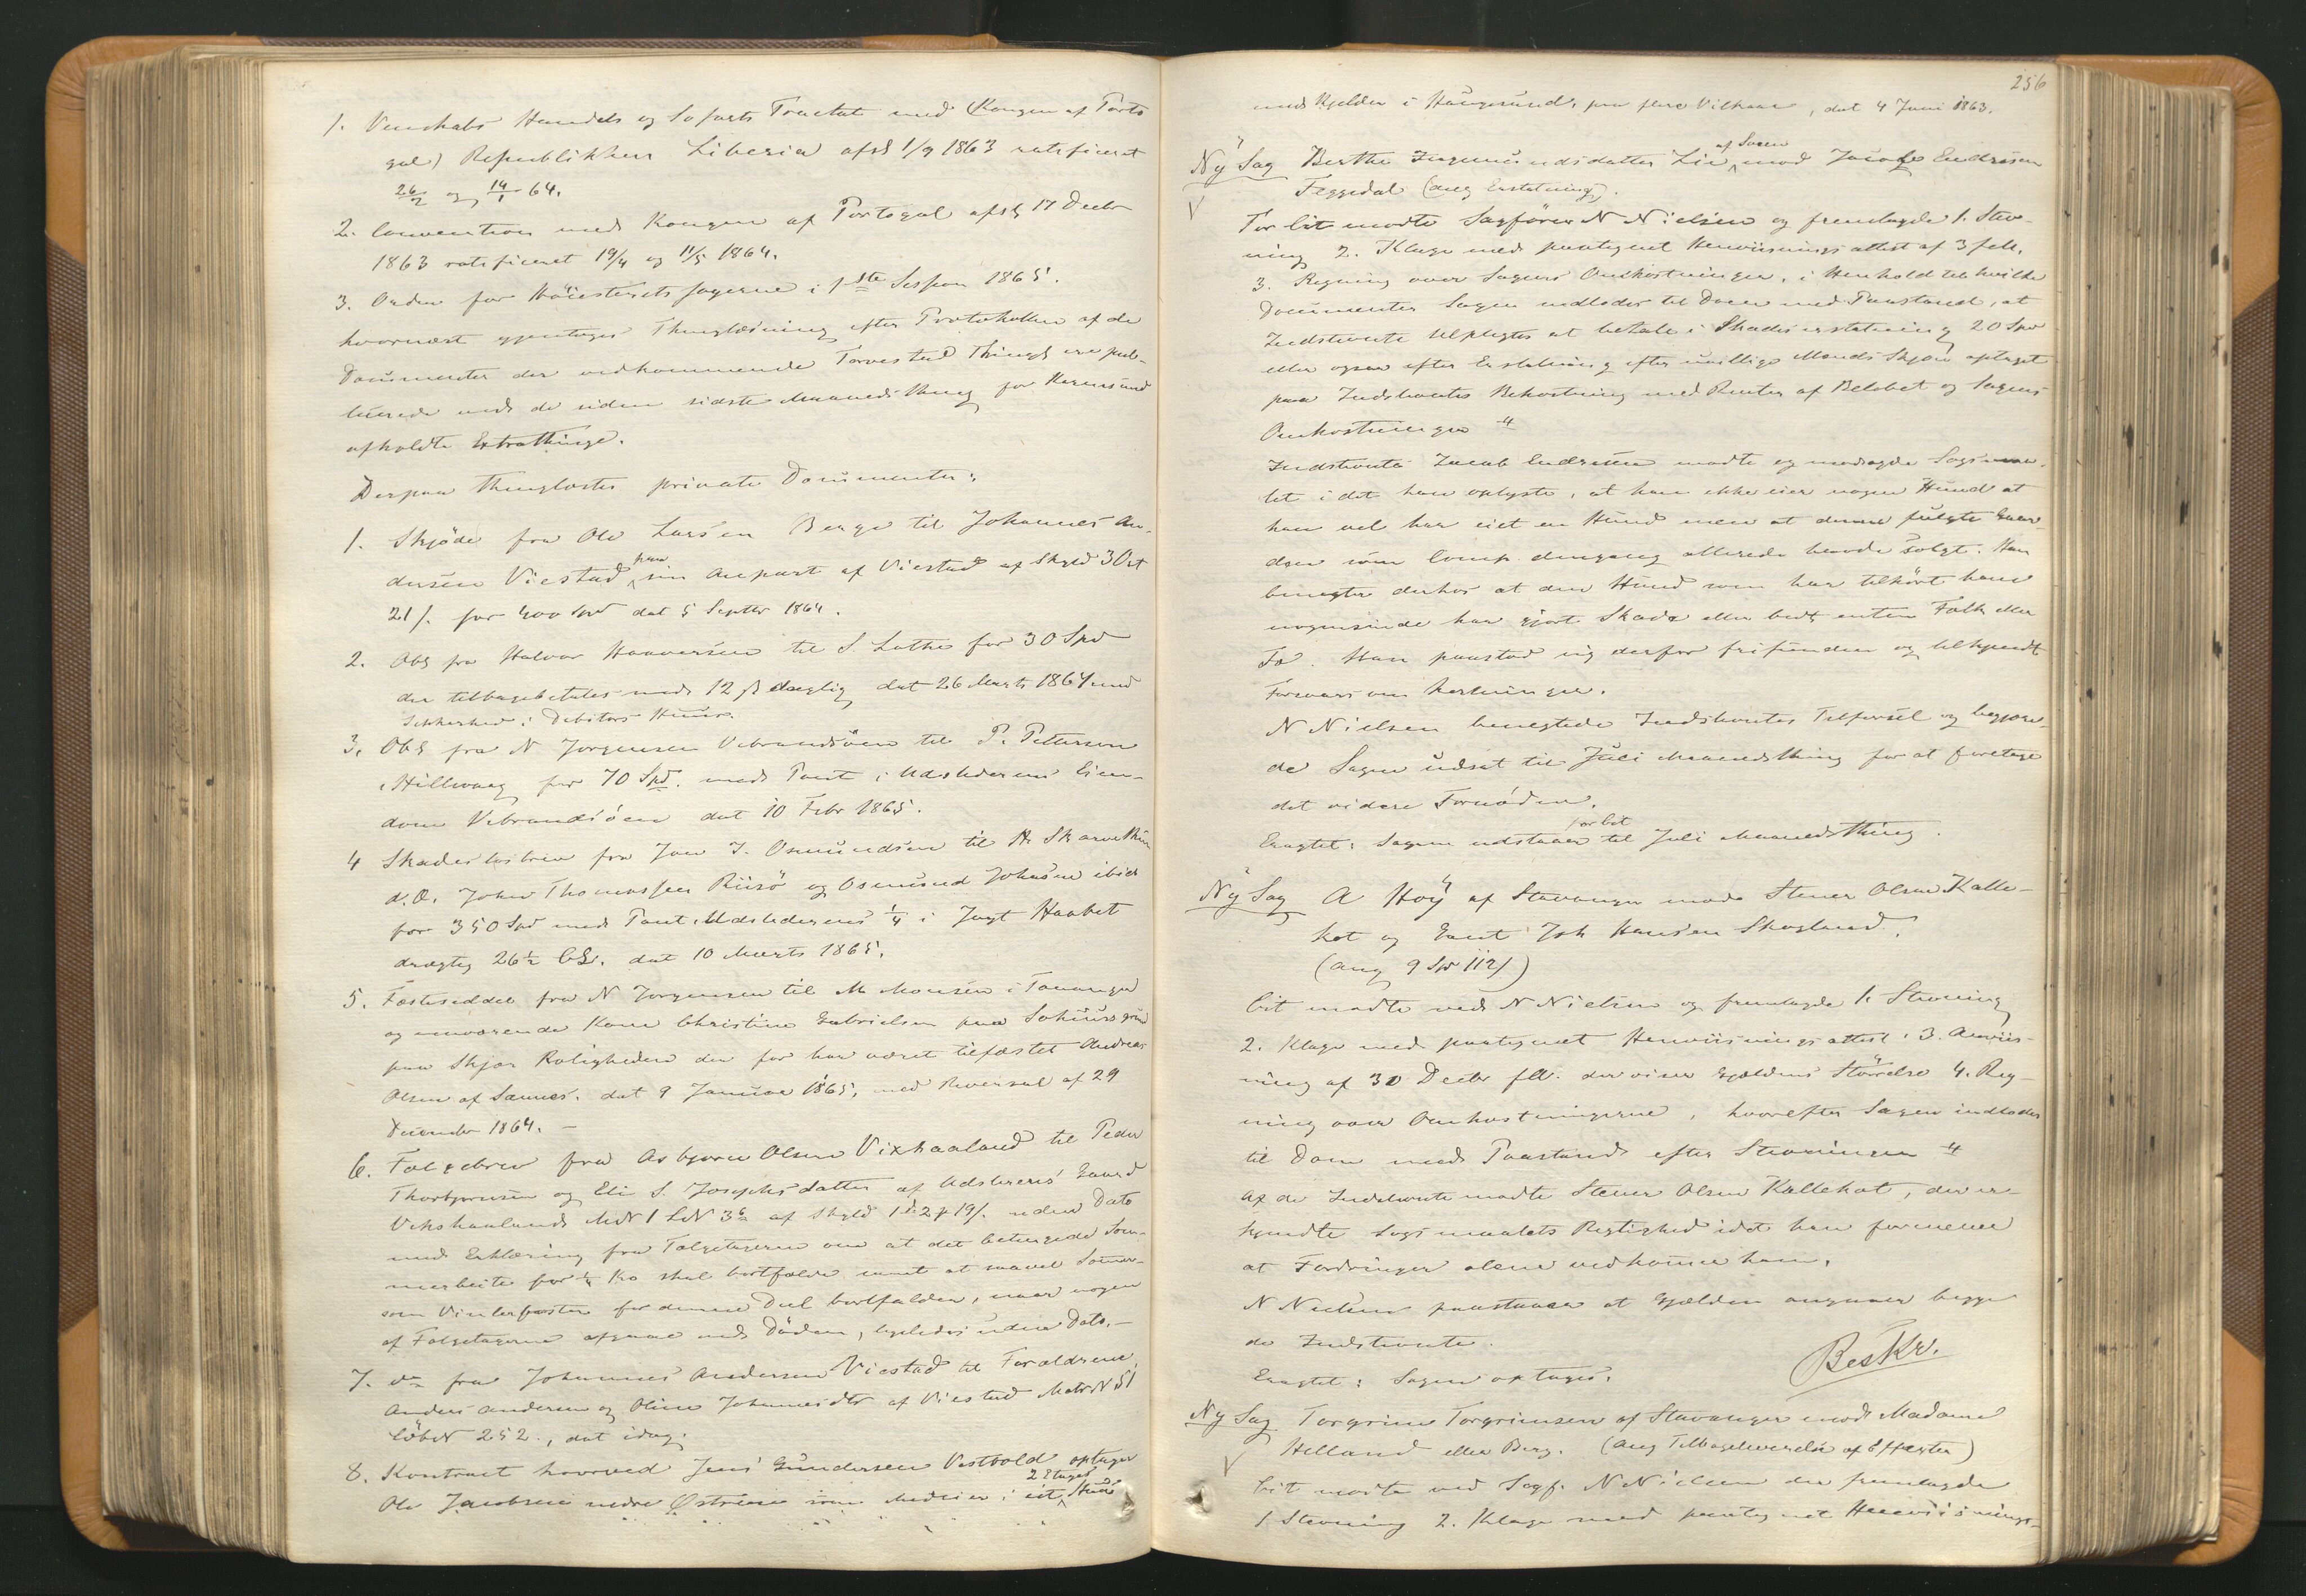 1. Venskabs Handels og Sofarts Tractat med (Kongen af Portu
gal) Republikken Liberia afsl 1/9 1863 ratificeret
26/2 og 14/1 64.
2. Convention med Kongen af Portugal afsl 17 Decbr
1863 ratificeret 19/4 og 11/5 1864.
3. Orden for Höiesteretssagerne i 1ste Session 1865.
hvornæst gjentoges Thinglæsning efter Protokollen af de
Documenter der vedkommende Torvestad Thingl ere pub-
licerede med de siden sidste Maanedsthing for Karmsund
afholdte Extrathinge.
Derpaa thinglæstes private Documenter:
1. Skjöde fra Ole Larsen Berge til Johannes An-
dersen Viestad paa sin Anpart af Viestad af Skyld 3 Ort
21 /. for 400 Spd dat 5 Septbr 1864.
2. Obl fra Halvor Haaversen til S. Lothe for 30 Spd
der tilbagebetales med 12 ß daglig dat 26 Marts 1864 med
Sikkerhed i Debitors Huus.
3. Obl fra N Jorgensen Vibrandsöen til P. Pettersen
Hillevaag for 70 Spd. med Pant i Udstederens Eien-
dom Vibrandsöen dat 10 Febr 1865.
4 Skadeslosbrev fra Jon J. Osmundsen til
d.Æ. John Thomassen Riisö og Osmund Johnsen ibid
for 350 Spd med Pant Udstederens 1/4 i Jagt Haabet
drægtig 26 1/2 CL. dat 10 Marts 1865.
5. Fæsteseddel fra N Jorgensen til M Monsen i Tananger
og nuværende Kone Christine Gabrielsen paa Sohuusgrund
paa Skjær Roligheden der for har været tilfæstet Andreas
Olsen af Sannes. dat 9 Januar 1865, med Reversal af 29
December 1864. –
6. Folgebrev fra Asbjorn Olsen Vixhaaland til Peder
Thorbjornsen og Eli S. Josephsdatter af Udstederens Gaard
Vikshaaland MN 1 LN 3a af Skyld 1 d 2 ort 19 /. uden Dato
med Erklæring fra Folgetagerne om at det betingede Som-
merbeite for 1/2 Ko skal bortfalde samt at saavel Sommer-
som Vinterfoster for denne Deel bortfalder, naar nogen
af Folgetagerne afgaar ved Döden, ligeledes uden Dato. –
7. do fra Johannes Andersen Viestad til Forældrene
Anders Andersen og Oline Johannesdtr af Viestad Matr N 51
LöbN 252., dat idag.
8. Kontract hvorved Jens Gundersen Vestvold optager
Ole Jacobsen nedre Østreim som Medeier i eit 2 Etages Huus
256
med Kjelder i Haugesund, paa flere Vilkaar, dat 4 Juni 1863.
Ny Sag Berthe Ingemundsdatter Lie af Sveen mod Jacob Endresen
Feggedal (ang Erstatning).
For Cit modte Sagförer N Nielsen og fremlagde 1. Stev-
ning 2. Klage med paategnet Henviisningsattest af 3 feb.
3. Regning over Sagens Omkostninger, i Henhold til hvilke
Documenter Sagen indlodes til Dom med Paastand, at
Indstevnte tilpligtes at betale i Skadeserstatning 20 Spd
eller ogsaa efter Erstatning efter uvillige Mænds Skjön optaget
paa Indstevntes Bekostning med Renter af Belobet og Sagens
Omkostninger
Indstevnte Jacob Endresen modte og modsagde Sogsmaa-
let i det han oplyste, at han ikke eier nogen Hund at
han vel har eiet en Hund men at denne fulgte Gaar-
den som Comp. dengang allerede havde solgt. Han
benegter derhos at den Hund som har tilhört ham
nogensinde har gjort Skade eller bidt enten Folk eller
Fæ. Han paastod sig derfor frifunden og tilkjendt
Forsvarsomkostninger.
N Nielsen benegtede Indstevntes Tilforsel og begjære-
de Sagen udsat til Juli Maanedsthing for at foretage
det videre Fornödne.
Eragtet: Sagen udstaaer for Cit til Juli Maanedsthing.
Ny Sag A Höy af Stavanger mod Stener Olsen Kalle-
kot og Cavt Joh Hansen Skogland.
(ang 9 Spd 112 /)
Cit modte ved N Nielsen og fremlagde 1. Stevning
2. Klage med paategnet Henviisningsattest 3. Anviis-
ning af 30 Decbr f.A. der viser Gjældens Störrelse 4. Reg-
ning over Omkostningerne, hvorefter Sagen indlodes
til Dom med Paastand efter Stevningen
Af de Indstevnte modte Stener Olsen Kallekot, der er-
kjendte Sogsmaalets Rigtighed idet han formener
at Fordringen alene vedkommer ham.
N Nielsen paastaaer at Gjælden angaaer begge
de Indstevnte.
Eragtet: Sagen optages.
Beskr.
Ny Sag Torgrim Torgrimsen af Stavanger mod Madame
Helland eller Berg. (ang Tilbageleverelse af Effecter)
Cit modte ved Sagf. N Nielsen der fremlagde
1 Stevning 2. Klage med paategnet Henviisnings-